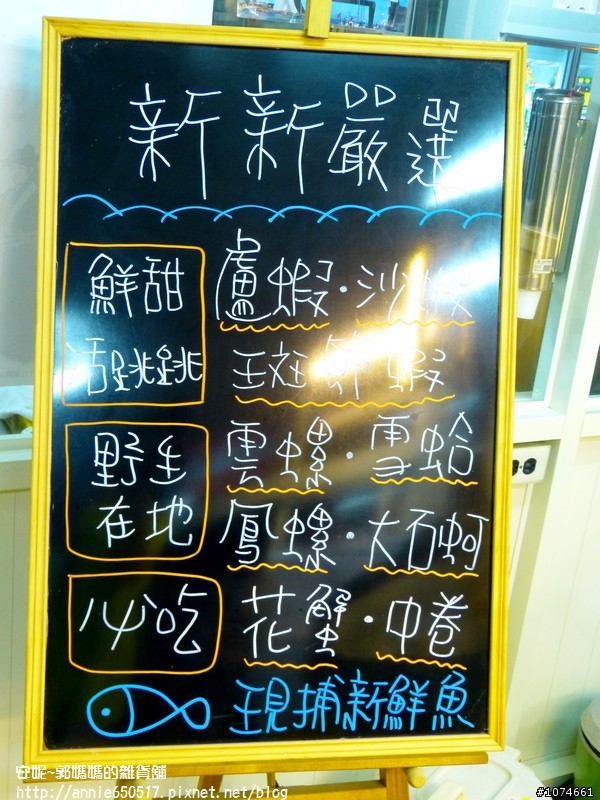 新新嚴選
鮮甜
活跳跳
盧蝦·沙蝦
斑節蝦
野生
在地
雲螺·雪蛤
鳳螺·大石蚵
必吃
花蟹·中卷
現捕新鮮魚
安妮~郭媽媽的雜貨舖
http://annie650517.pixnet.net/blog
#1074661